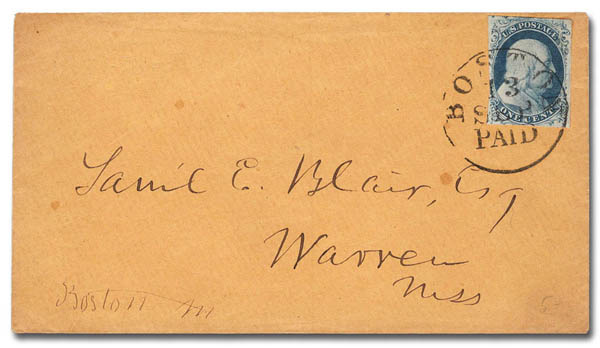 U.S. POSTAGE
ONE CENT
BOSTON
3
PAID
Saml E. Blair, Esq
Warren
Mass
Boston M